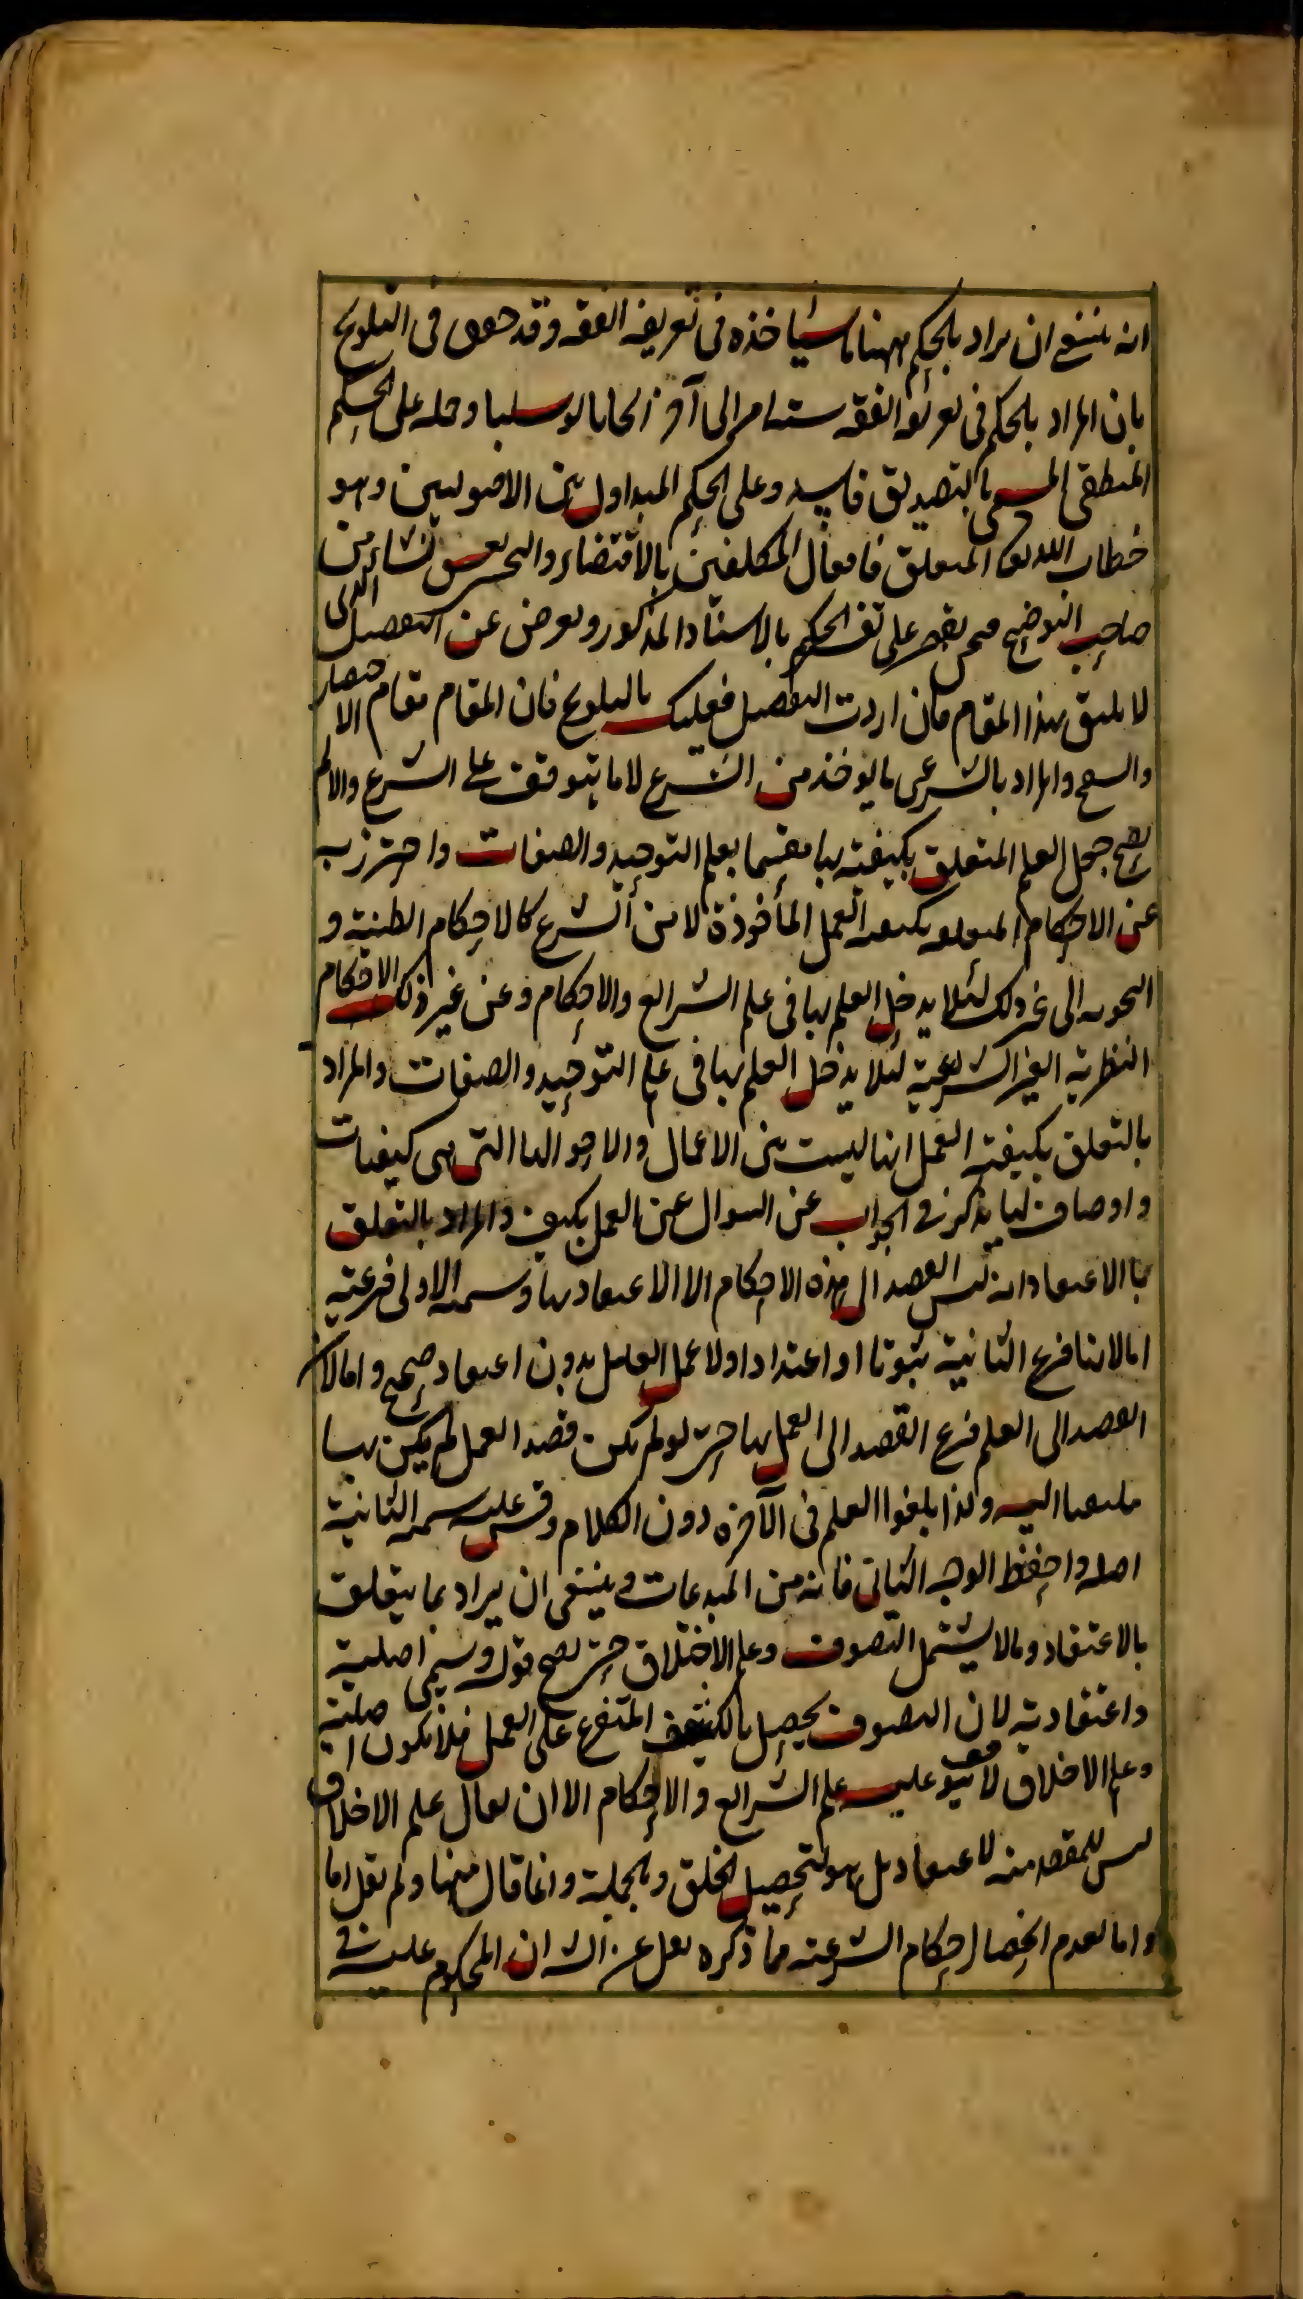 انه ينبغي ان يراد بالحكم ههنا ما سيأخذه في تعريف الفقه وقد حقق في التلويح
بان المراد بالحكم في تعريف الفقه اسناد امر الى آخر ايجابا او سلبا وحمله على الحكم
المنطقي المسمى بالتصديق فاسد وعلى الحكم المتداول بين الاصوليين وهو
خطاب الله تعا المتعلق بافعال المكلفين بالاقتضاء والتخيير نشاء من
صاحب التوضيح فنحن نقتصر على تفسير الحكم بالاسناد المذكور ونعرض عن التفصيل الذي
لا يليق بهذا المقام فان اردت التفصيل فعليك بالتلويح فان المقام مقام الاختصار
والمراد بالشرعي ما يؤخذ من الشرع لا ما يتوقف على الشرع والا لم
يصح جعل العلم المتعلق بكيفية بها مقسما بعلم التوحيد والصفات واحترز به
عن الاحكام المتعلقة بكيفية العمل المأخوذة لا من الشرع كالاحكام الطبية و
النحوية الى غير ذلك لئلا يدخل العلم بها في علم الشرايع والاحكام وعن غير ذلك الاحكام
النظرية الغير الشرعية لئلا يدخل العلم بها في علم التوحيد والصفات والمراد
بالتعلق بكيفية العمل انها ليست من الاعمال والاحوالها التي هي كيفيات
واوصاف لها يذكر في الجواب عن السوال عن العمل بكيف والمراد بالتعلق
بالاعتقاد انه ليس القصد الى هذه الاحكام الا الاعتقاد بها وتسمية الاولى فرعية
اما لانها فرع الثانية ثبوتا او اعتدادا ولا عمل العامل بدون اعتقاد صحيح واما لان
القصد الى العلم فرع القصد الى العمل بها حتى لو لم يكن قصد العمل لم يكن بها
ملتفتا اليه ولذا يلغوا العلم في الآخرة دون الكلام وقس عليه تسمية الثانية
اصلية واحفظ الوجه الثاني فانه من المبدعات وينبغي ان يراد بما يتعلق
بالاعتقاد وما لا يشتمل التصوف وعلم الاخلاق حتى يصح قوله وتسمى اصلية
واعتقادية لان التصوف يحصل بالكشف المتفرع على العمل فلا يكون اصلية
وعلم الاخلاق لا يتوقف عليه علم الشرايع والاحكام الا ان يقال علم الاخلاق
ليس المقصد منه الاعتقاد بل هو لتحصيل الخلق وبالجملة وانما قال منها ولم يقل اما
واما لعدم انحصار احكام الشرعية فما ذكره نقل عن الش ان المحكوم عليه في